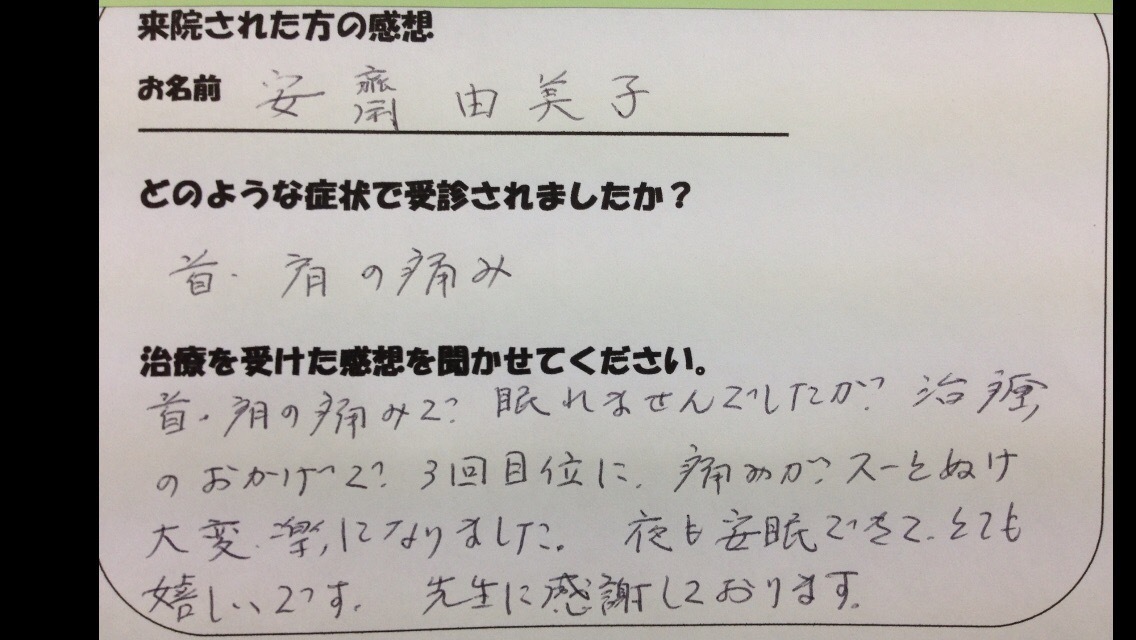 来院された方の感想
お名前 安齋 由美子
どのような症状で受診されましたか？
首・肩の痛み
治療を受けた感想を聞かせてください。
首・肩の痛みで眠れませんでしたが治療
のおかげで3回目位に、痛みがスーとぬけ
大変、楽になりました。 夜も安眠できて、とても
嬉しいです。 先生に感謝しております。